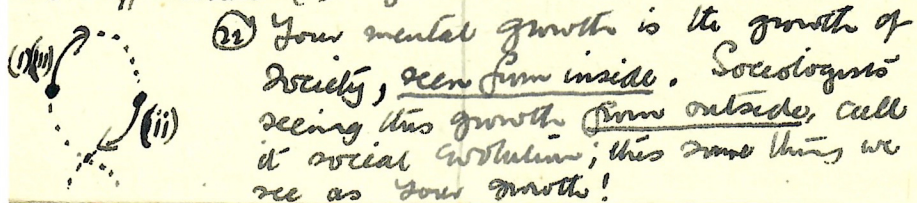 (i)(iii)
(ii)
(22) Your mental growth is the growth of
society, seen from inside. Sociologists
seeing this growth from outside, call
it social evolution; this same thing we
see as your growth!